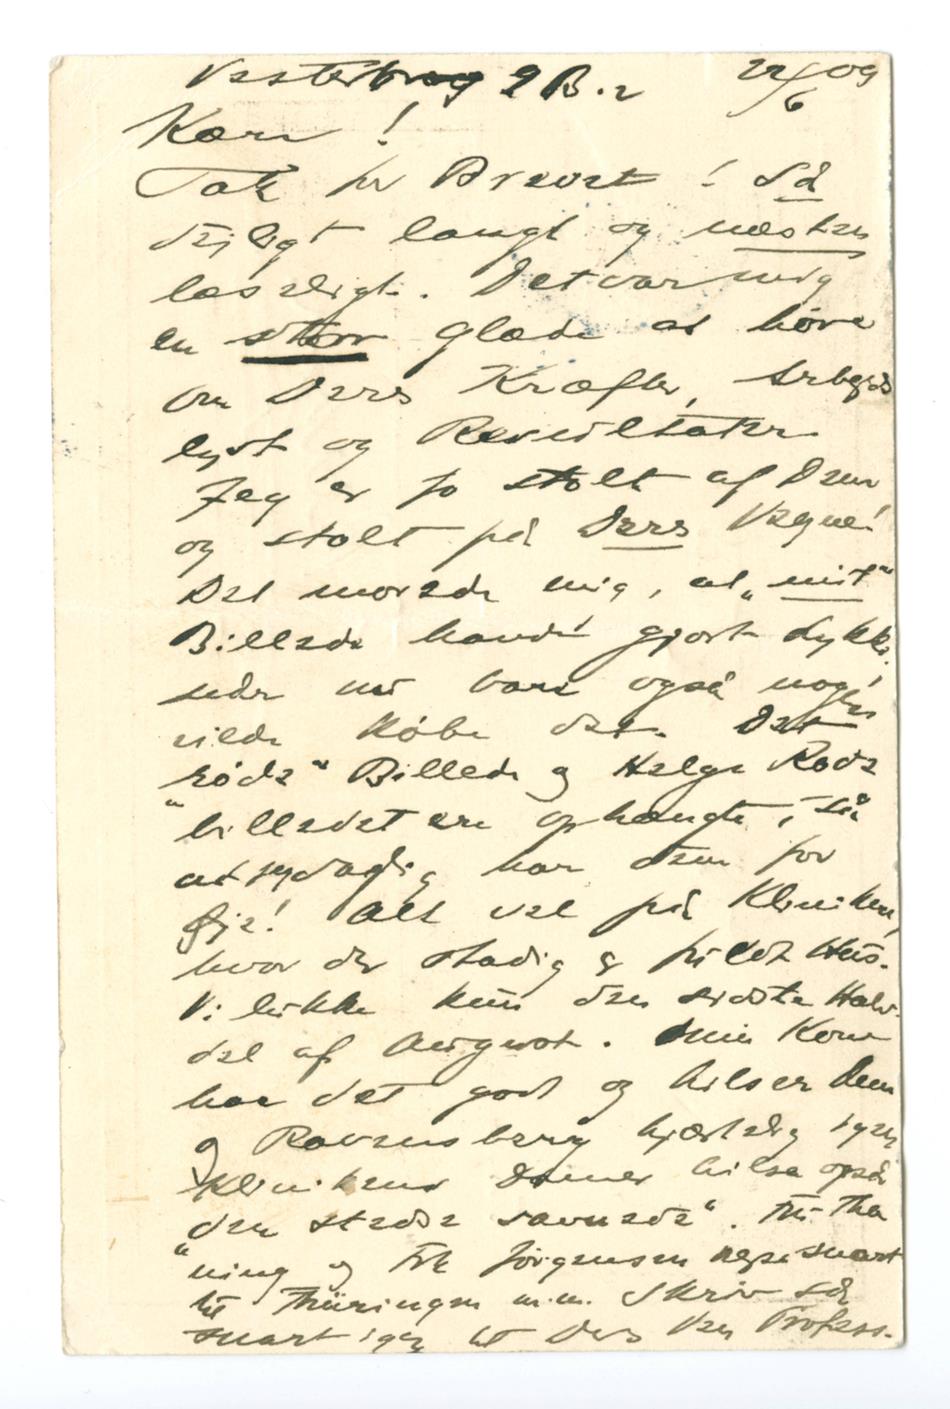 Vesterbrog 9 B.2 22/6 09
Kære !
Tak for Brevet ! Så
dejligt langt og næsten
læseligt. Det var mig
en stor Glæde at høre
om Deres Kræfter, Arbejds
lyst og Resultater
Jeg er jo stolt af Dem
og stolt på Deres Vegne!
Det morede mig, at „mit"
Billede havde gjort Lykke.
nu bare også nogen
vilde købe det. Det
røde" Billede og Helge Rode
"billedet ere ophængte, så
at jeg daglig har dem for
Øje! Alt vel på Kliniken,
hvor der stadig er fuldt Hus.
Vi lukke kun den sidste Halv-
del af August. Min Kone
har det godt og hilser Dem
og Ravensberg hjærtelig igen
Klinikens Damer hilse også
den stedse savnede". Frk Tha
"ning og Frk Jørgensen rejse snart
til Thüringen m.m. Skriv så
snart igen til Deres Ven Profess.